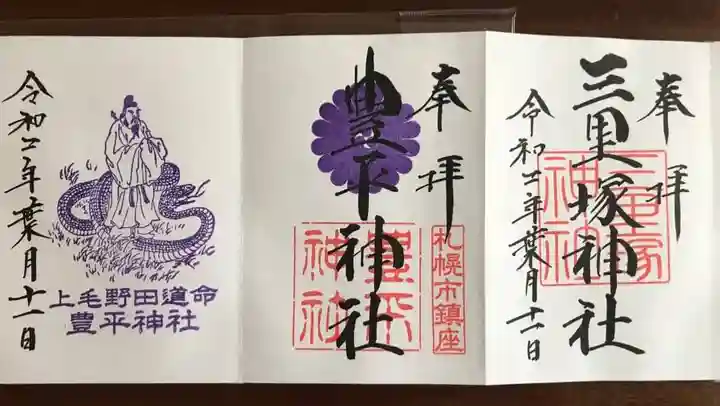 奉拝
三里塚神社
三里塚神社
令和二年葉月十一日
奉拝
豊平神社
札幌市鎮座
豊平神社
上毛野田道命
豊平神社
令和二年葉月十一日